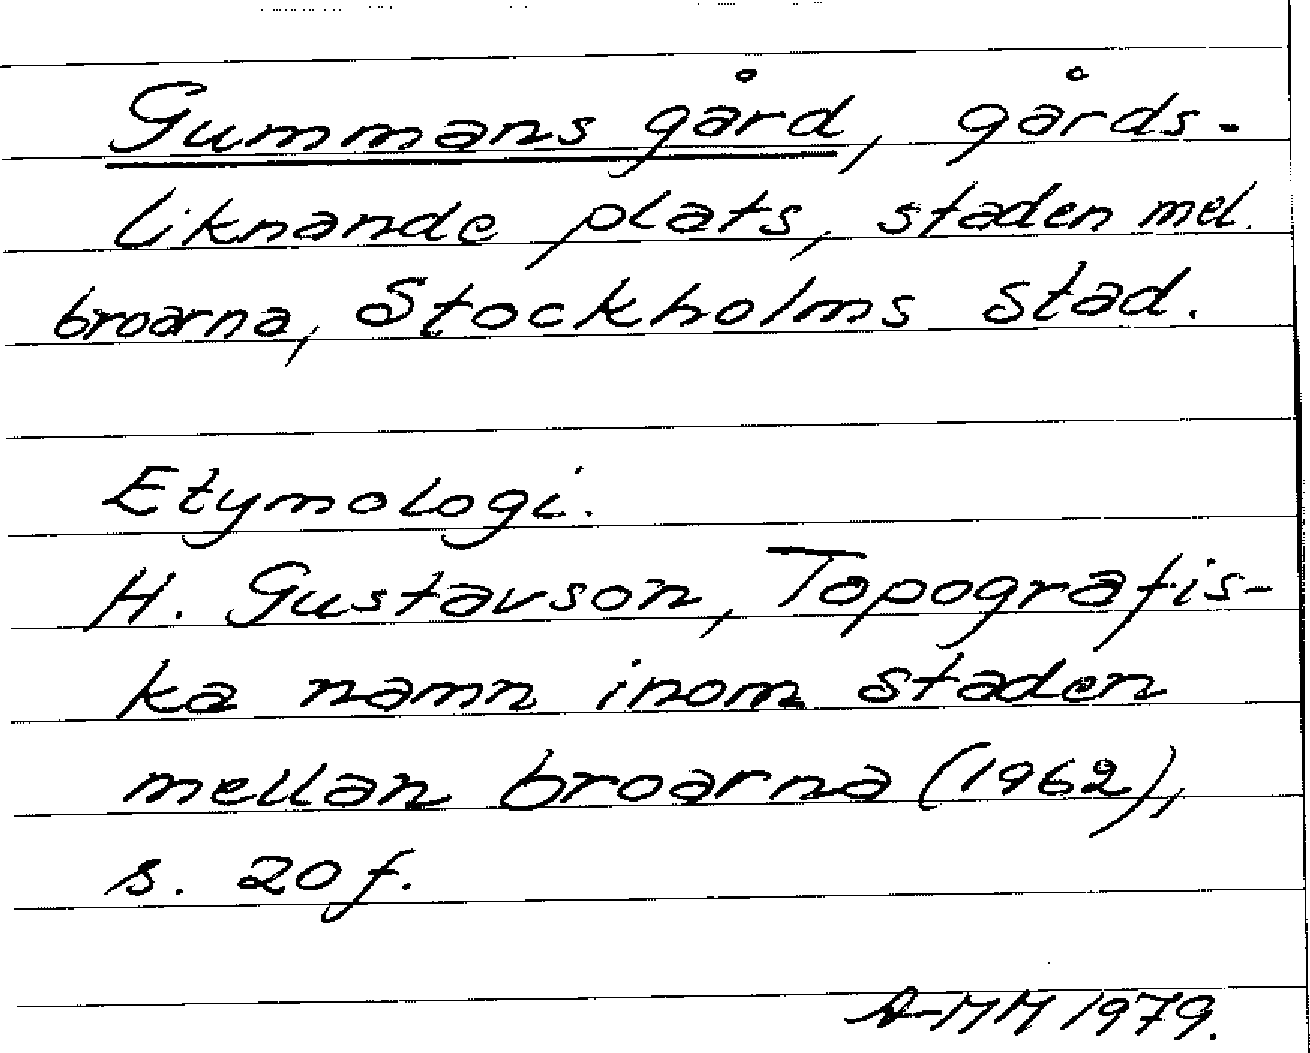 Gummans gård, gårds-
liknande plats, staden mel.
broarna, Stockholms stad.
Etymologi.
H. Gustavson, Topografis-
ka namn inom staden
mellan broarna (1962),
s. 20 f.
A-MM 1979.